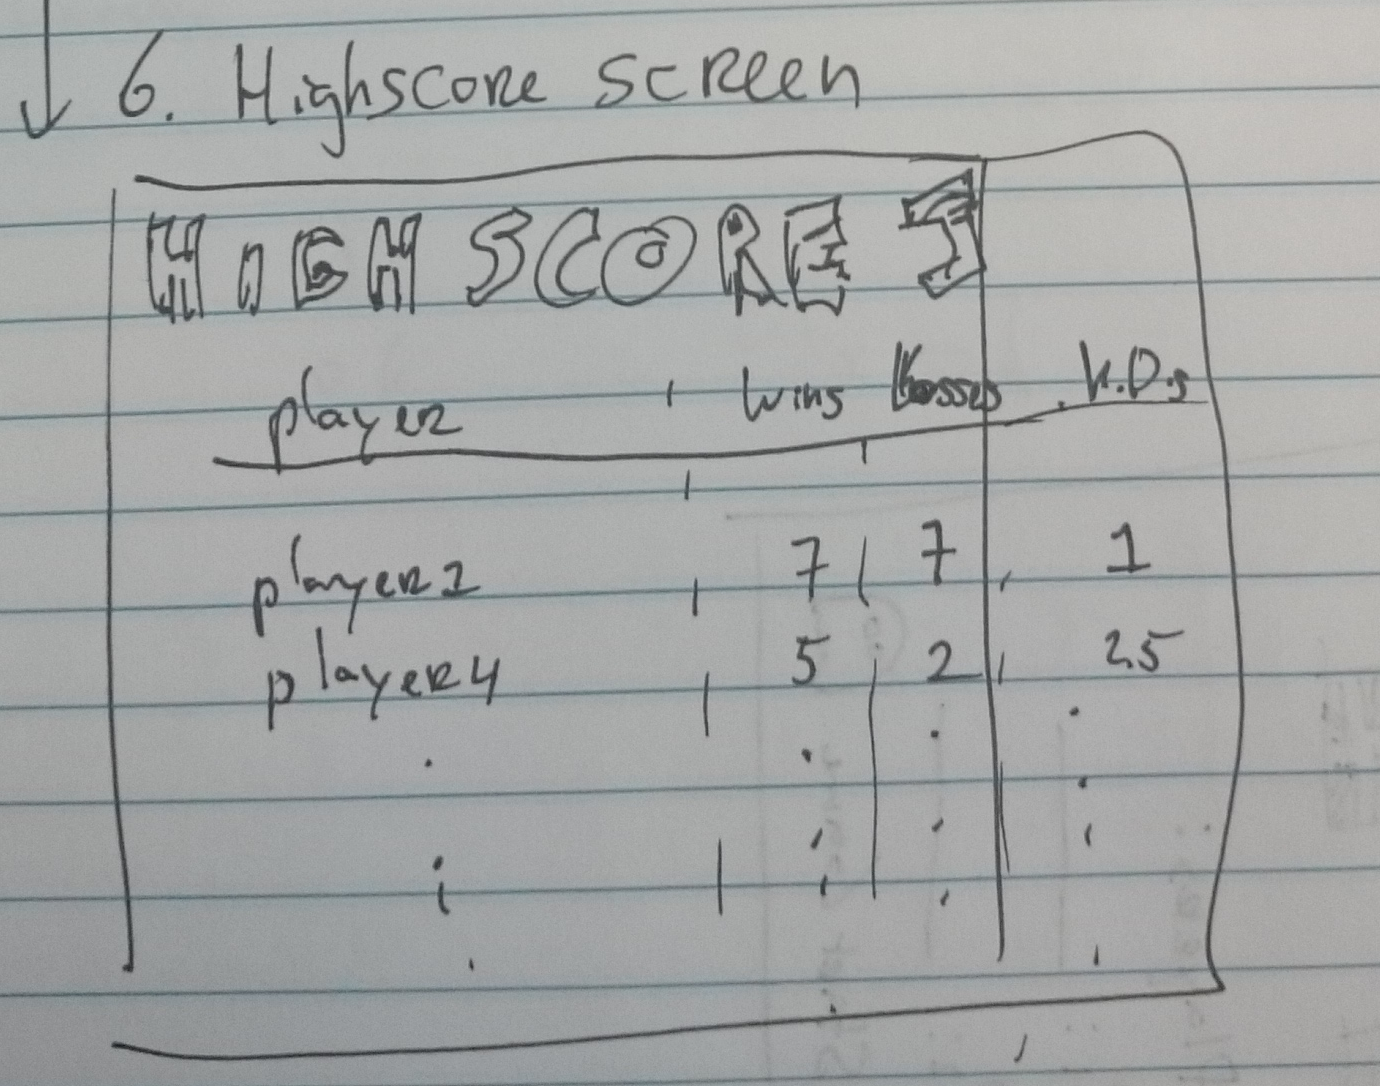 6. Highscore screen
HIGH SCORES
player wins losses K.D.s
player1 7 7 1
player4 5 2 2.5